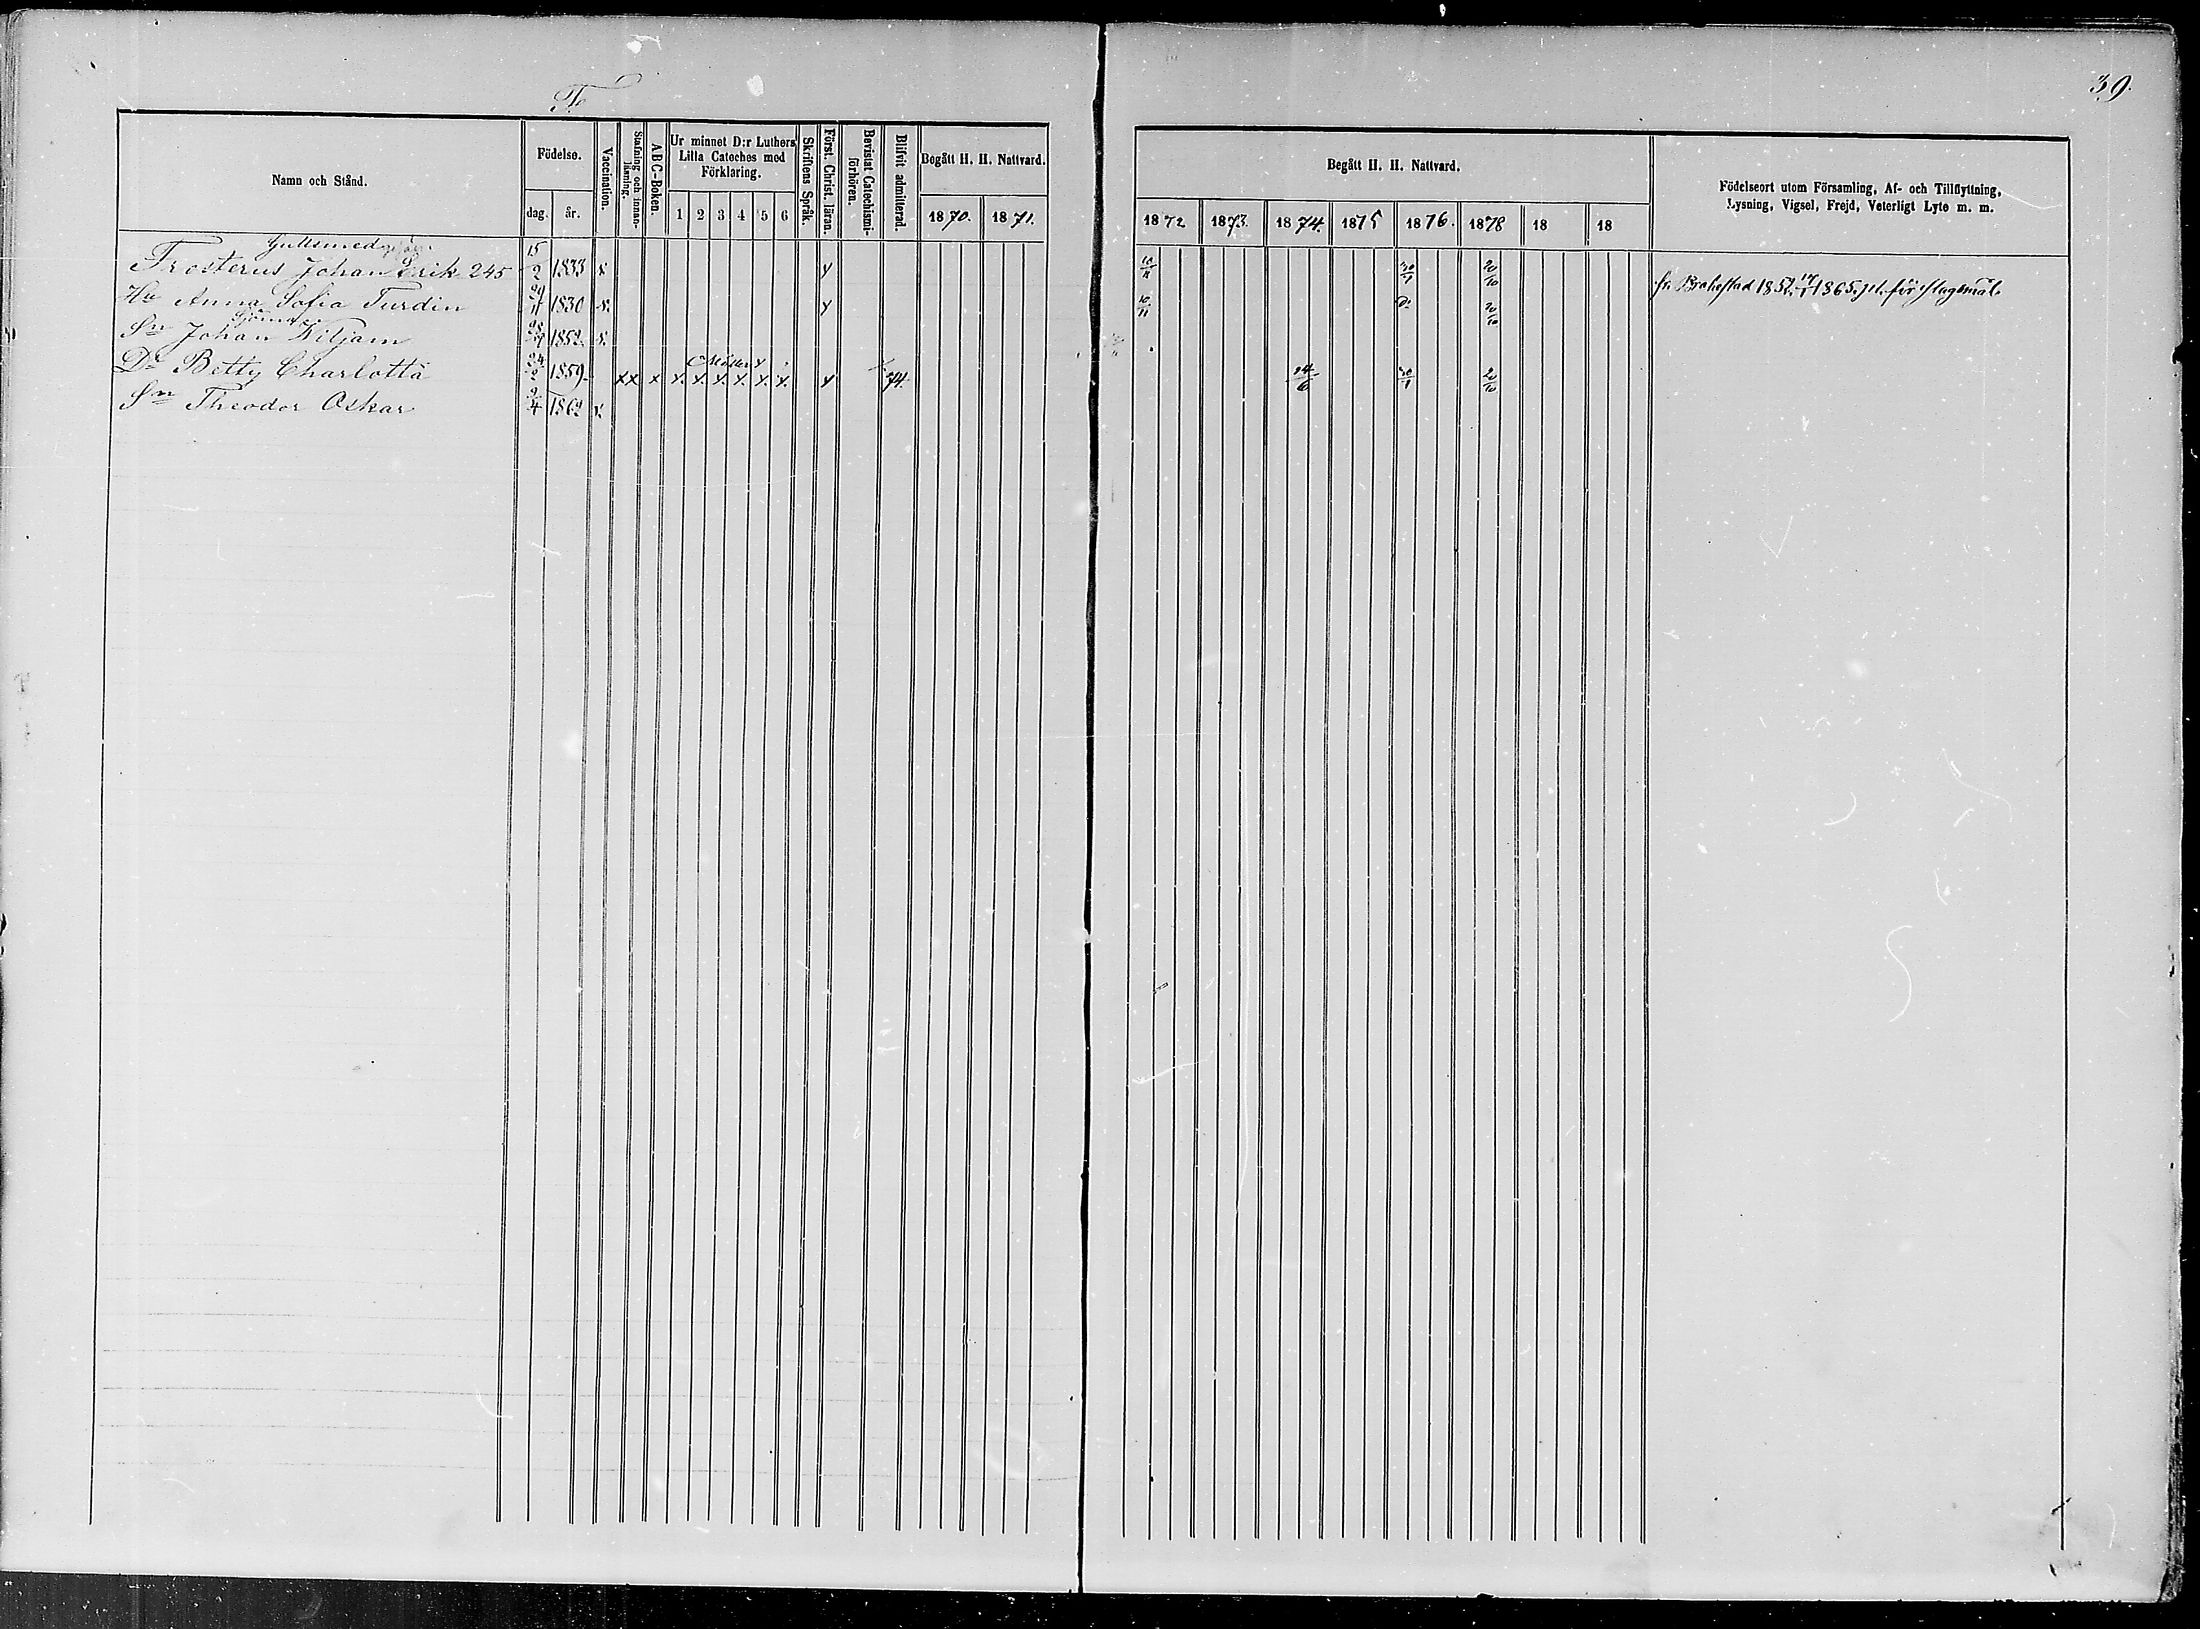 T.
39.
Namn och Stånd.
Födelse.
dag.
år.
Vaccination.
Stafning och innan-
läsning.
ABC-Boken.
Ur minnet D:r Luthers
Lilla Cateches med
Förklaring.
1 2 3 4 5 6
Skriftens Språk.
Först. Christ. läran.
Bevistat Catechismi-
förhören.
Blifvit admitterad.
Begått H. H. Nattvard.
1870. 1871.
Begått H. H. Nattvard.
1872 1873. 1874. 1875 1876. 1878 18 18
Födelseort utom Församling, Af- och Tillflyttning,
Lysning, Vigsel, Frejd, Veterligt Lyte m. m.
Gullsmed
Trosterus Johan Erik 245 15/2 1833 v. y 10/11 30/1 20/10 fr. Brahestad 1852. 17/1 1865. för slagsmål.
Hu Anna Sofia Turdin 29/11 1830 v. y 10/11 Do 20/10
Sjöman
Sn Johan Wiljam 1852. v.
Dr Betty Charlotta 24/2 1859. xx x x. x. x. x. x. x. y 74. 14/6 30/1 20/10
Sn Theodor Oskar 2/4 1862 v.